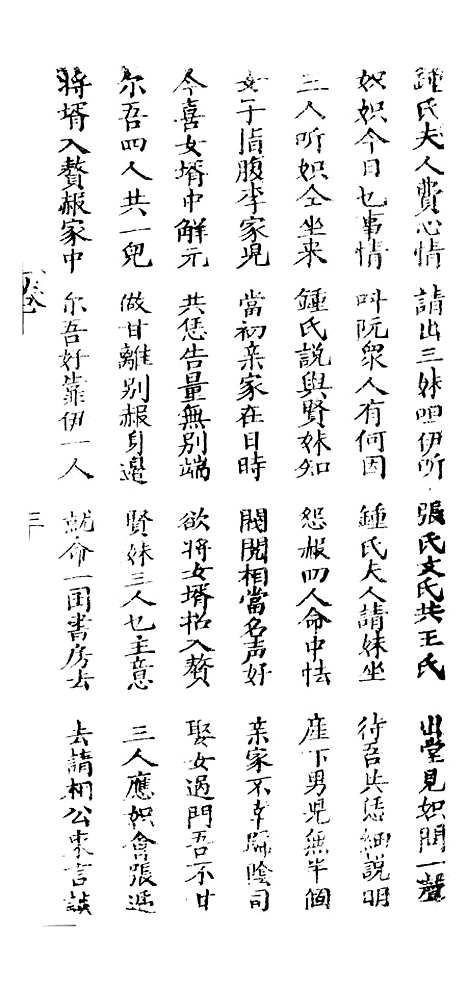 鍾氏夫人費心情 請出三妹呾伊所 張氏文氏共王氏 出堂見姒問一聲
姒姒今日乜事情 叫阮衆人有何因 鍾氏夫人請妹坐 待吾共恁細說明
三人听姒仝坐來 鍾氏說與賢妹知 怨赧四人命中怯 產下男児無半個
女子指腹李家児 當初亲家在日時 閥閱相當名声好 亲家不幸歸陰司
今喜女壻中解元 共恁告量無別端 欲將女壻招入贅 娶女過門吾不甘
尓吾四人共一兒 做甘離別赧身邊 賢妹三人乜主意 三人應姒會張遲
將壻入贅赧家中 尓吾好靠伊一人 就命一囝書房去 去請相公來言談
三